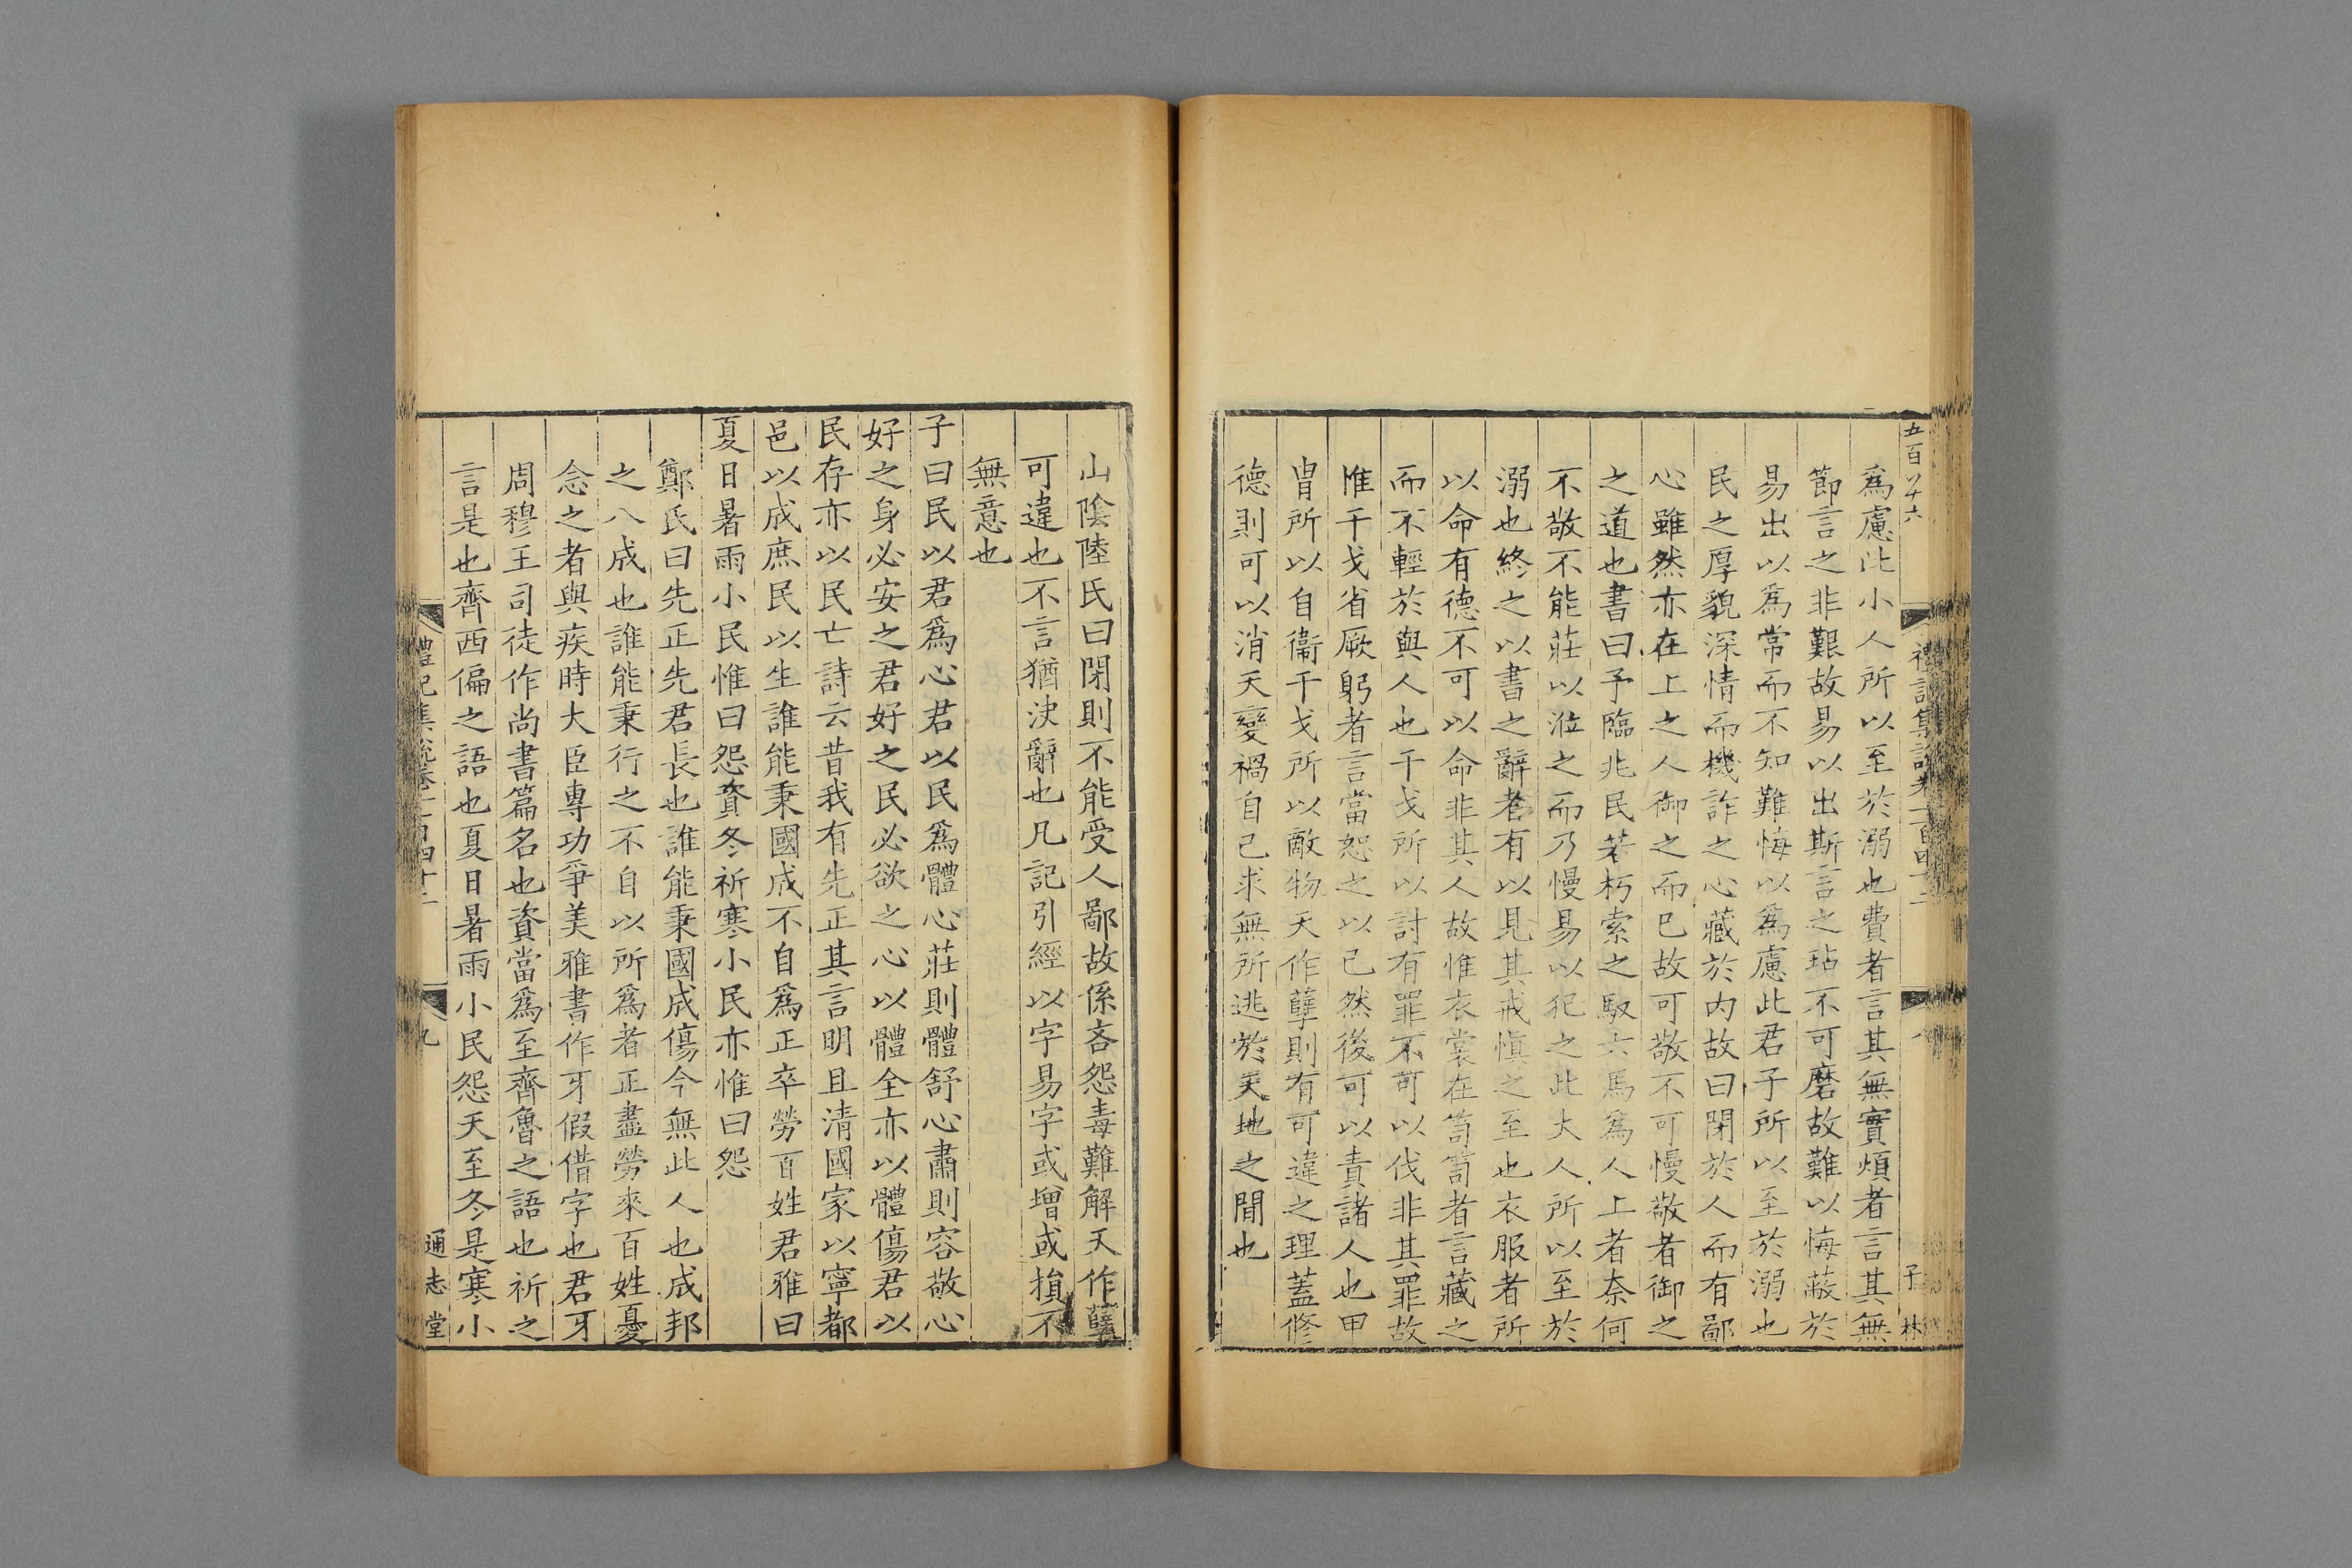 五百八十六
禮記集說卷一百四十二
八
子林
爲慮此小人所以至於溺也費者言其無實煩者言其無
節言之非艱故易以出斯言之玷不可磨故難以悔蔽於
易出以爲常而不知難悔以爲慮此君子所以至於溺也
民之厚貌深情而機詐之心藏於內故曰閉於人而有鄙
心雖然亦在上之人御之而已故可敬不可慢敬者御之
之道也書曰予臨兆民若朽索之馭六馬爲人上者奈何
不敬不能莊以涖之而乃慢易以犯之此大人所以至於
溺也終之以書之辭者有以見其戒愼之至也衣服者所
以命有德不可以命非其人故惟衣裳在笥笥者言藏之
而不輕於與人也干戈所以討有罪不可以伐非其罪故
惟干戈省厥躬者言當恕之以已然後可以責諸人也甲
胄所以自衞干戈所以敵物天作孽則有可違之理蓋修
德則可以消天變禍自己求無所逃於天地之間也
山陰陸氏曰閉則不能受人鄙故係吝怨毒難解天作孽
可違也不言猶決辭也凡記引經以字易字或增或損不
無意也
子曰民以君爲心君以民爲體心莊則體舒心肅則容敬心
好之身必安之君好之民必欲之心以體全亦以體傷君以
民存亦以民亡詩云昔我有先正其言明且清國家以寧都
邑以成庶民以生誰能秉國成不自爲正卒勞百姓君雅曰
夏日暑雨小民惟曰怨資冬祈寒小民亦惟曰怨
鄭氏曰先正先君長也誰能秉國成傷今無此人也成邦
之八成也誰能秉行之不自以所爲者正盡勞來百姓憂
念之者與疾時大臣專功爭美雅書作牙假借字也君牙
周穆王司徒作尚書篇名也資當爲至齊魯之語也祈之
言是也齊西偏之語也夏日暑雨小民怨天至冬是寒小
禮記集說卷一百四十二
九
通志堂